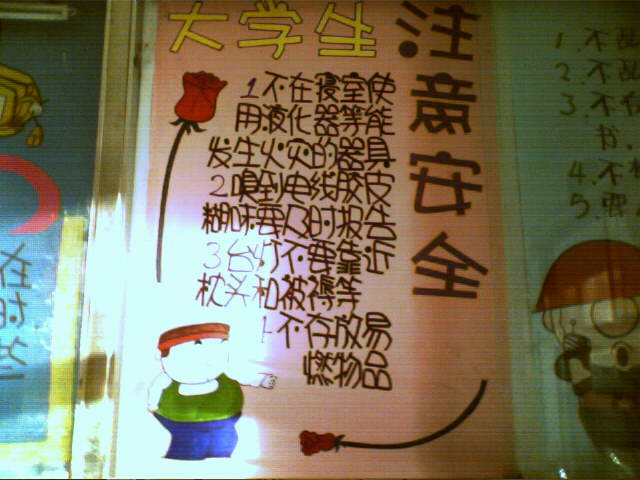 大学生
注意安全
1不在寝室使
用液化器等能
发生火灾的器具
2嗅到电线胶皮
糊味要及时报告
3台灯不要靠近
枕头和被褥等
4不存放易
燃物品
1.不
2.不
3.不
书.
4.不
5.